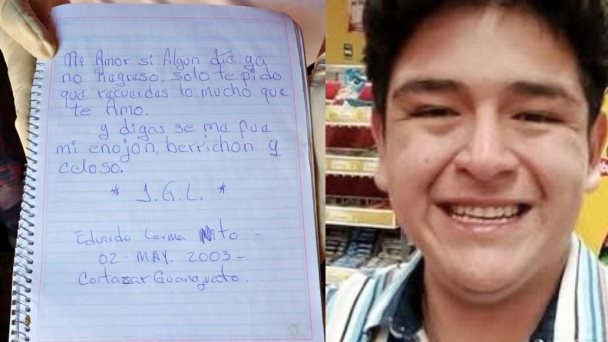 Mi Amor si Algún día ya
no Regreso. solo te pido
que recuerdes lo mucho que
te Amo.
y digas se ma fua
mi enojon, berrichon y
celoso.
* J.G.L. *
Eduardo Lerma Nito -
02 - MAY. 2003 -
Cortazar Guanajuato.